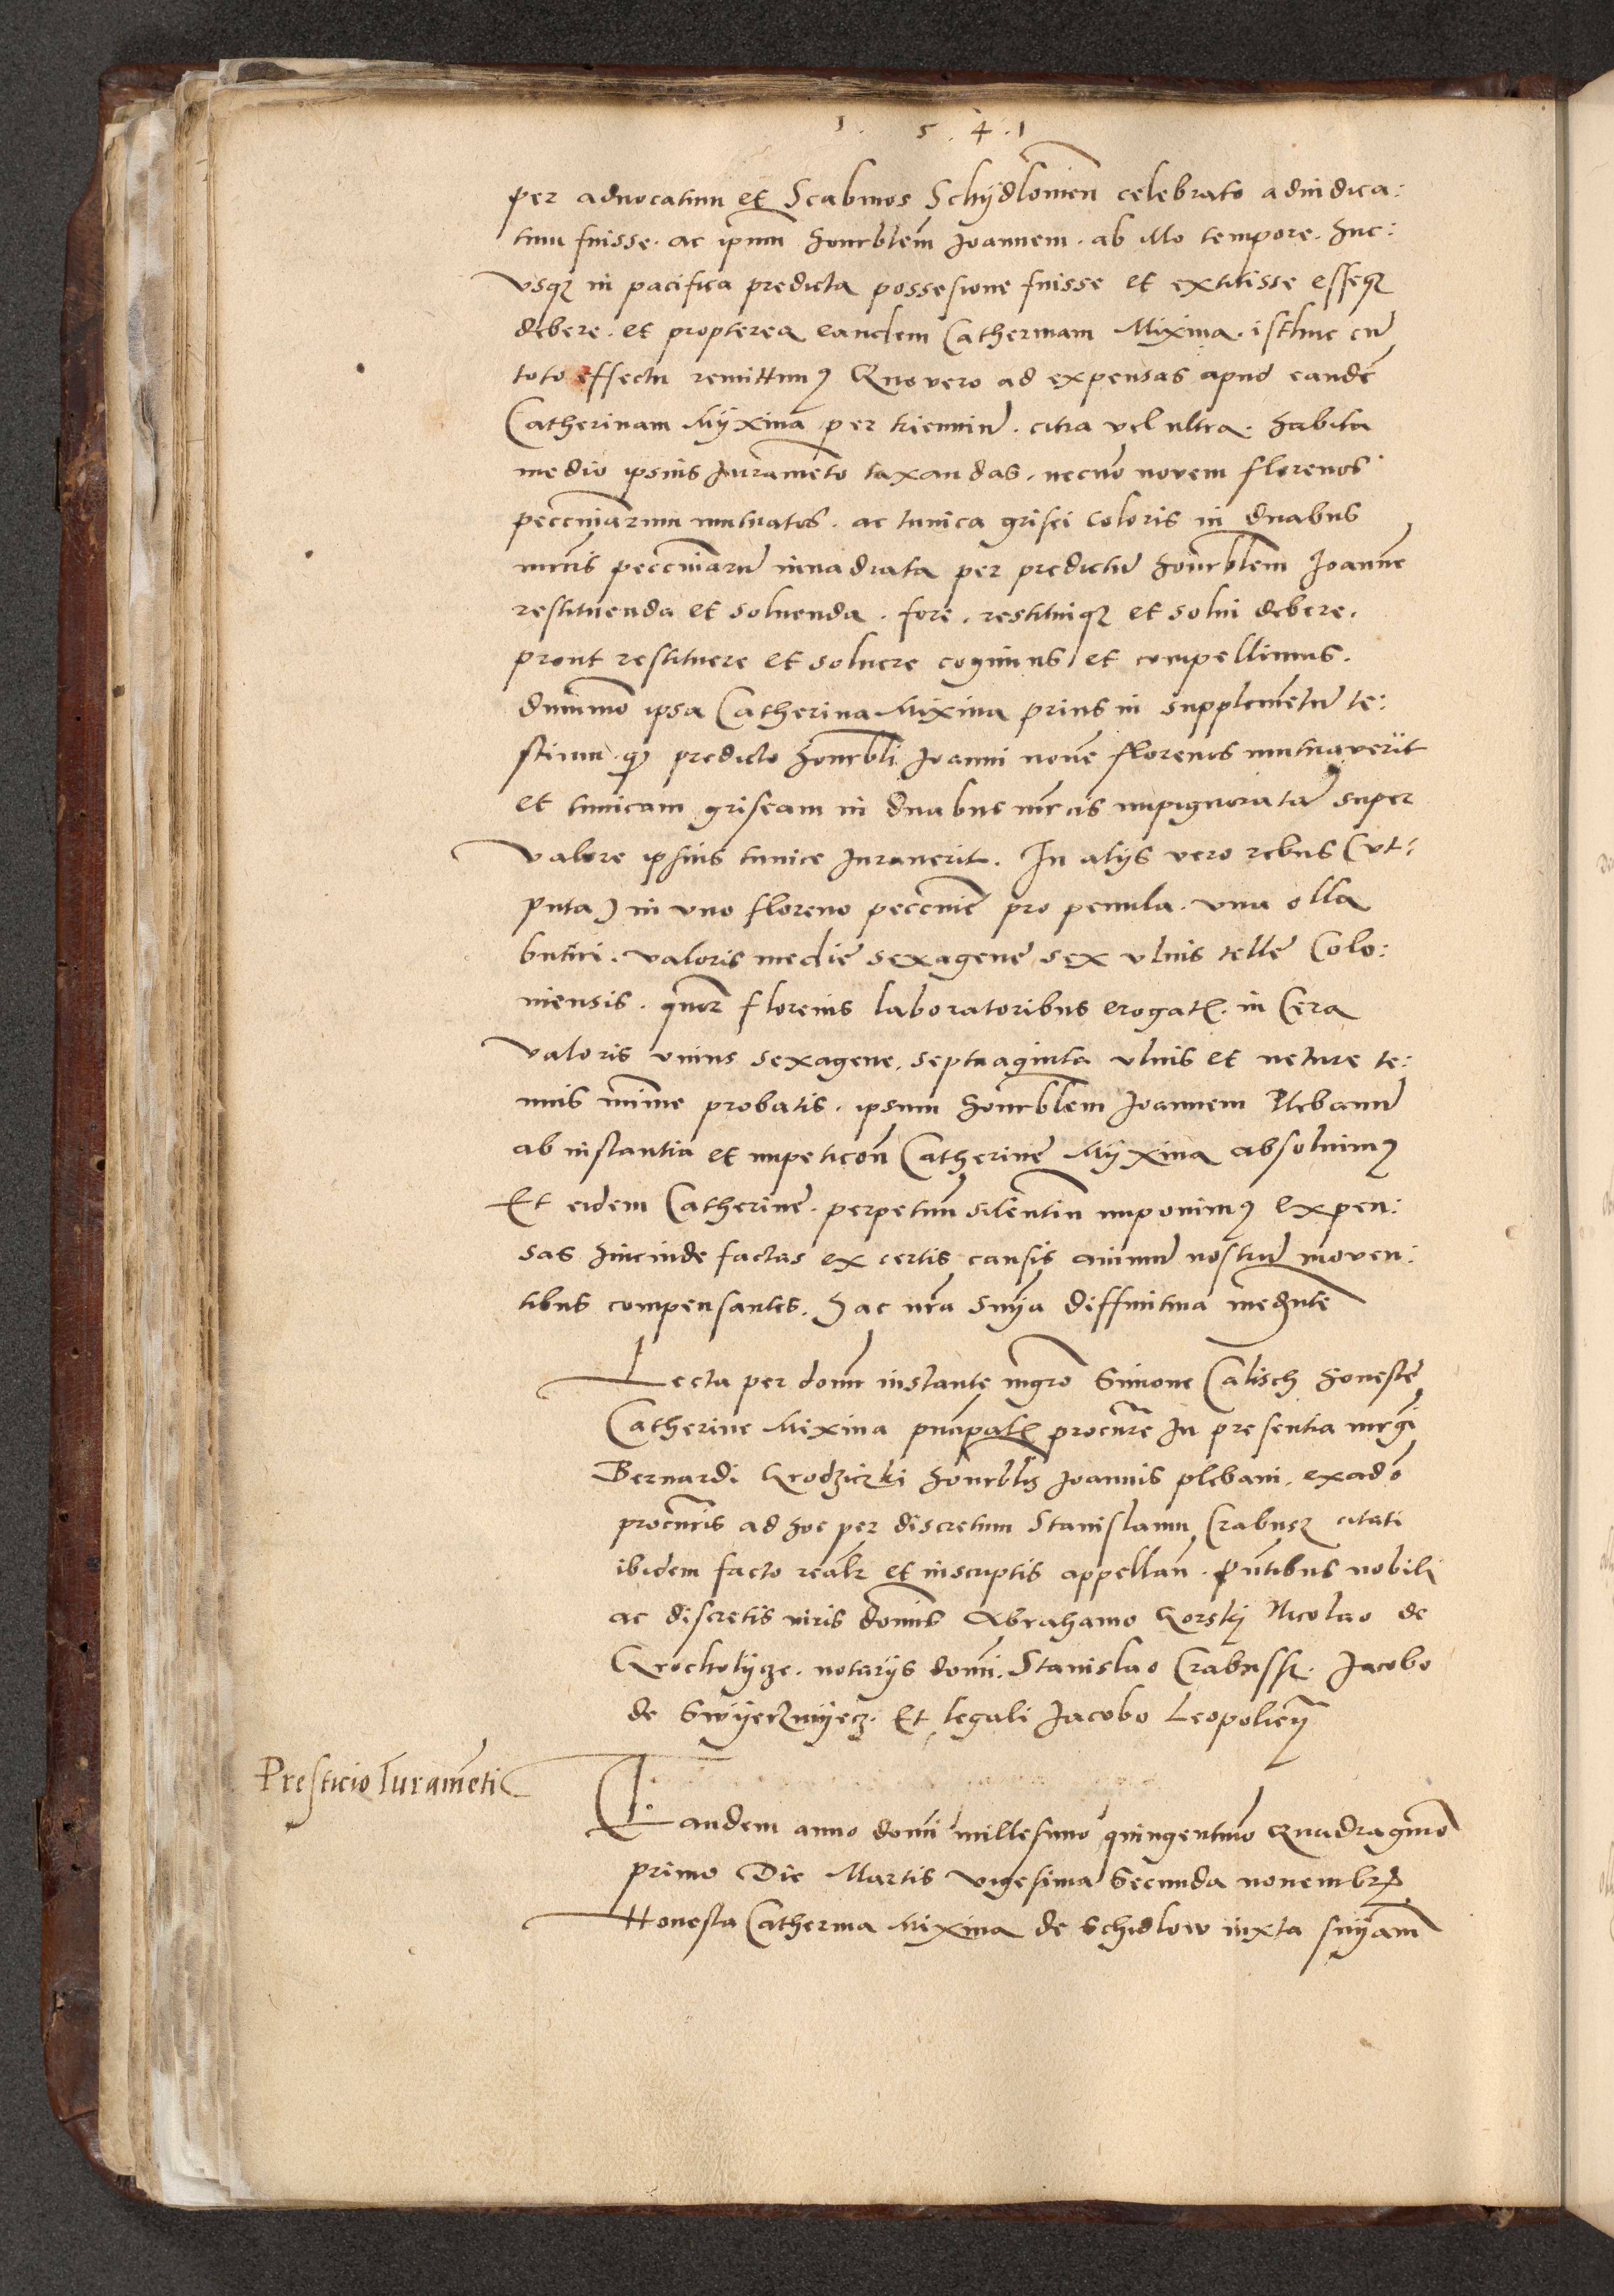 1 . 5 . 4 . 1
per aduocatum et Scabinos Schÿdlouien̄ celebrato adiudica:
tum fuisse . ac ipsum honorablem̄ Joannem . ab illo tempore . huc:
vsqȝ in pacifica predicta possesione fuisse et extitisse esseqȝ
debere . et propterea eandem Catherinam Mixina . isthuc cū
toto effectu remittimꝰ Quo vero ad expensas apud eandē
Catherinam Mÿxina per trienniū . citra vel vltra . habita
medio ipsius Juramēto taxandas . necnō novem florenos
pecceniarum mutuatos . ac tunica grisei coloris in duabus
mrcis pecceniarū inuadiata per predictū honorblem̄ Joannē
restituenda et soluenda . fore . restituiqȝ et solui debere .
prout restituere et soluere cogimus et compellimus .
dummō ipsa Catherina Mixina prius in supplemētū te:
stium . qȝ predicto honorbli Joanni novē florenos mutuaverit
et tunicam griseam in duabus mrcis impignoratā super
valore ipsius tunice Jurauerit . In alijs vero rebus (vt:
puta) in vno floreno peccenie pro penula . vna olla
butiri . valoris medie sexagene sex vlnis telle Colo:
niensis . quor florenis laboratoribus erogatꝭ . in Cera
valoris vnius sexagene . septuaginta vlnis et neture te:
nuis minime probatis . ipsum honorblem Joannem Plebanū
ab instantia et impeticōn Catherine Mÿxina absoluimꝰ
Et eidem Catherine . perpetuū silentiū imponimꝰ expen:
sas hincinde factas ex certis causis animū nostrū moven:
tibus compensantes . hac nr̄a sn̄ia diffinitiua med̄nte
Lecta per domī instante mgrō Simone Calisch honeste
Catherine Mixina prīcipalꝭ procurē In presentia mrgī
Bernardi Grodziczki honorblis Joannis plebani . exadō
procūris ad hoc per discretum Stanislaum Crabusz citati
ibidem facto realr̄ et inscriptis appellan̄ . Pn̄tibus nobili
ac discretis viris domīs Abrahamo Gorskj Nicolao de
Grocholÿcze . notarijs domī . Stanislao Crabussz . Jacobo
de Swÿerznÿecz . Et legali Jacobo Leopolien̄
Presticio Juramēti
Tandem anno domī millesimo quingentmō Quadragmō
primo Die Martis vigesima Secunda nouembrꝭ
Honesta Catherina Mixina de Schidlow iuxta sn̄iam